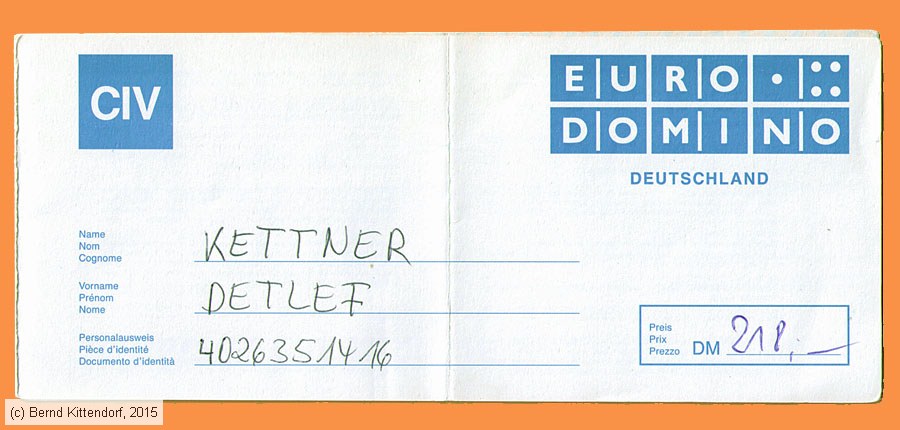 CIV
EURO
DOMINO
DEUTSCHLAND
Name
Nom
Cognome
KETTNER
Vorname
Prénom
Nome
DETLEF
Personalausweis
Pièce d'identité
Documento d'identità
4026351416
Preis
Prix
Prezzo
DM 218,-
(c) Bernd Kittendorf, 2015